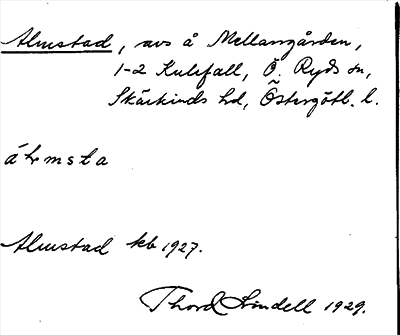 Almstad, avs å Mellangården,
1-2 Kulefall, Ö. Ryds sn,
Skärkinds hd, Östergötl. l.
Almstad kb 1927.
Thord Lindell 1929.